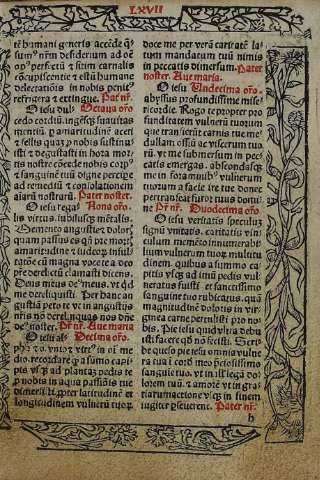 LXVII
te humani generis accede qs
sumum nrm desiderium ad om
ne perfectū & sitim carnalis
concupiscentie et estū humane
delectationis in nobis penit⁹
refrigera & extingue. Pat nr.
O dul. Jesu Octaua oro.
cedo cordiū, ingēsq; suauitas
mentiū p amaritudinē aceti
& fellis quā p nobis sustinu
isti & degustasti in hora mor
tis nostre cōcede nobis corp⁹
& sanguinē tuū digne percipe
ad remediū & cōsolationem
aīarū nostrarū. Pater noster.
O iesu rega Nona oro.
lis virtus. iubilusq; mētalis.
Memento angustie & dolorꝭ
quam passus es
amaritudine & iudeoꝝ insul
tatione cū magna voce te a deo
pre derelictū clamasti dicens.
Deus meus de⁹ meus. vt qd
me dereliquisti. Per hanc an
gustiā peto te vt in angustijs
nris nō derelinquas nos dñe
de⁹ noster. Pr nr. Aue maria
O iesu al Decima oro.
pha & o. vita & virt⁹ in oī me
dio. recordare qr a sūmo capi
tis vsq; ad plantas pedis te
p nobis in aqua passiōis tue
dimersisti. Propter latitudinē et
longitudinem vulnerū tuoꝝ
doce me per verā caritatē la
tum mandatum tuū nimis
in peccatis dimersum. Pater
noster. Aue maria.
O iesu Undecima oro.
abyssus profundissime mise
ricordie. Rogo te propter pro
funditatem vulnerū tuorum
que transierūt carnis tue me
dullam ossiū ac viscerum tuo
rū. vt me submersum in pec
catis emergas. abscondasq;
me in foraminibus vulnerū
tuorum a facie ire tue donec
pertranseat furor tuus domi
ne Pr nr. Duodecima oro.
O iesu veritatis speculū
signū vnitatis. caritatis vin
culum memēto innumerabi
lium vulnerum tuoꝝ multitu
dinem. quibus a summo ca
pitis vsq; ad imū pedis vul
neratus fuisti. et sanctissimo
sanguine tuo rubricatus. quā
magnitudinē doloris in vir
ginea carne pertulisti pro no
bis. Pie iesu quid vltra debu
isti facere qd nō fecisti. Scri
be queso pie iesu omnia vulne
ra tua ī corde meo p̄ciosissimo
sanguine tuo. vt in ill⁹ legā do
lorem tuū. & amorē vt in gra
tiarum actione vsq; in finem
iugiter pseuerem. Pater nr.
h